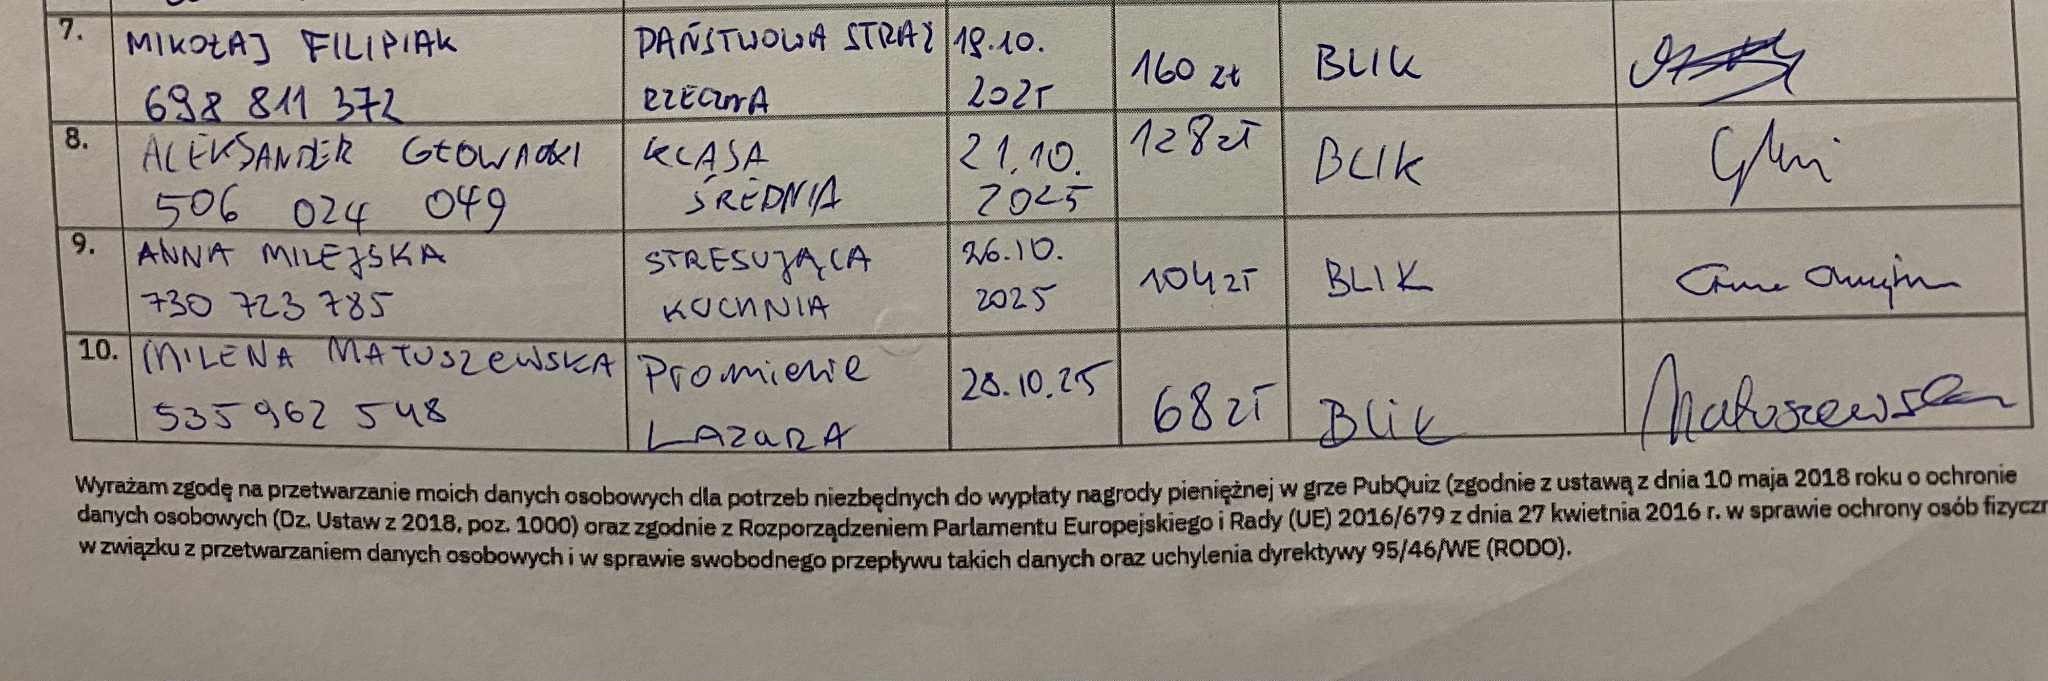 7.
MIKOŁAJ FILIPIAK
698 811 372
PAŃSTWOWA STRAŻ
RZECZNA
19.10.
2025
160 zł
BLIK
8.
ALEKSANDER GŁOWACKI
506 024 049
KLASA
ŚREDNIA
21.10.
2025
128 zł
BLIK
9.
ANNA MILEJSKA
730 723 785
STRESUJĄCA
KUCHNIA
26.10.
2025
104 zł
BLIK
10.
MILENA MATUSZEWSKA
535 962 548
Promienie
LAZARA
28.10.25
68 zł
BLIK
Matuszewska
Wyrażam zgodę na przetwarzanie moich danych osobowych dla potrzeb niezbędnych do wypłaty nagrody pieniężnej w grze PubQuiz (zgodnie z ustawą z dnia 10 maja 2018 roku o ochronie
danych osobowych (Dz. Ustaw z 2018, poz. 1000) oraz zgodnie z Rozporządzeniem Parlamentu Europejskiego i Rady (UE) 2016/679 z dnia 27 kwietnia 2016 r. w sprawie ochrony osób fizyczn
w związku z przetwarzaniem danych osobowych i w sprawie swobodnego przepływu takich danych oraz uchylenia dyrektywy 95/46/WE (RODO).